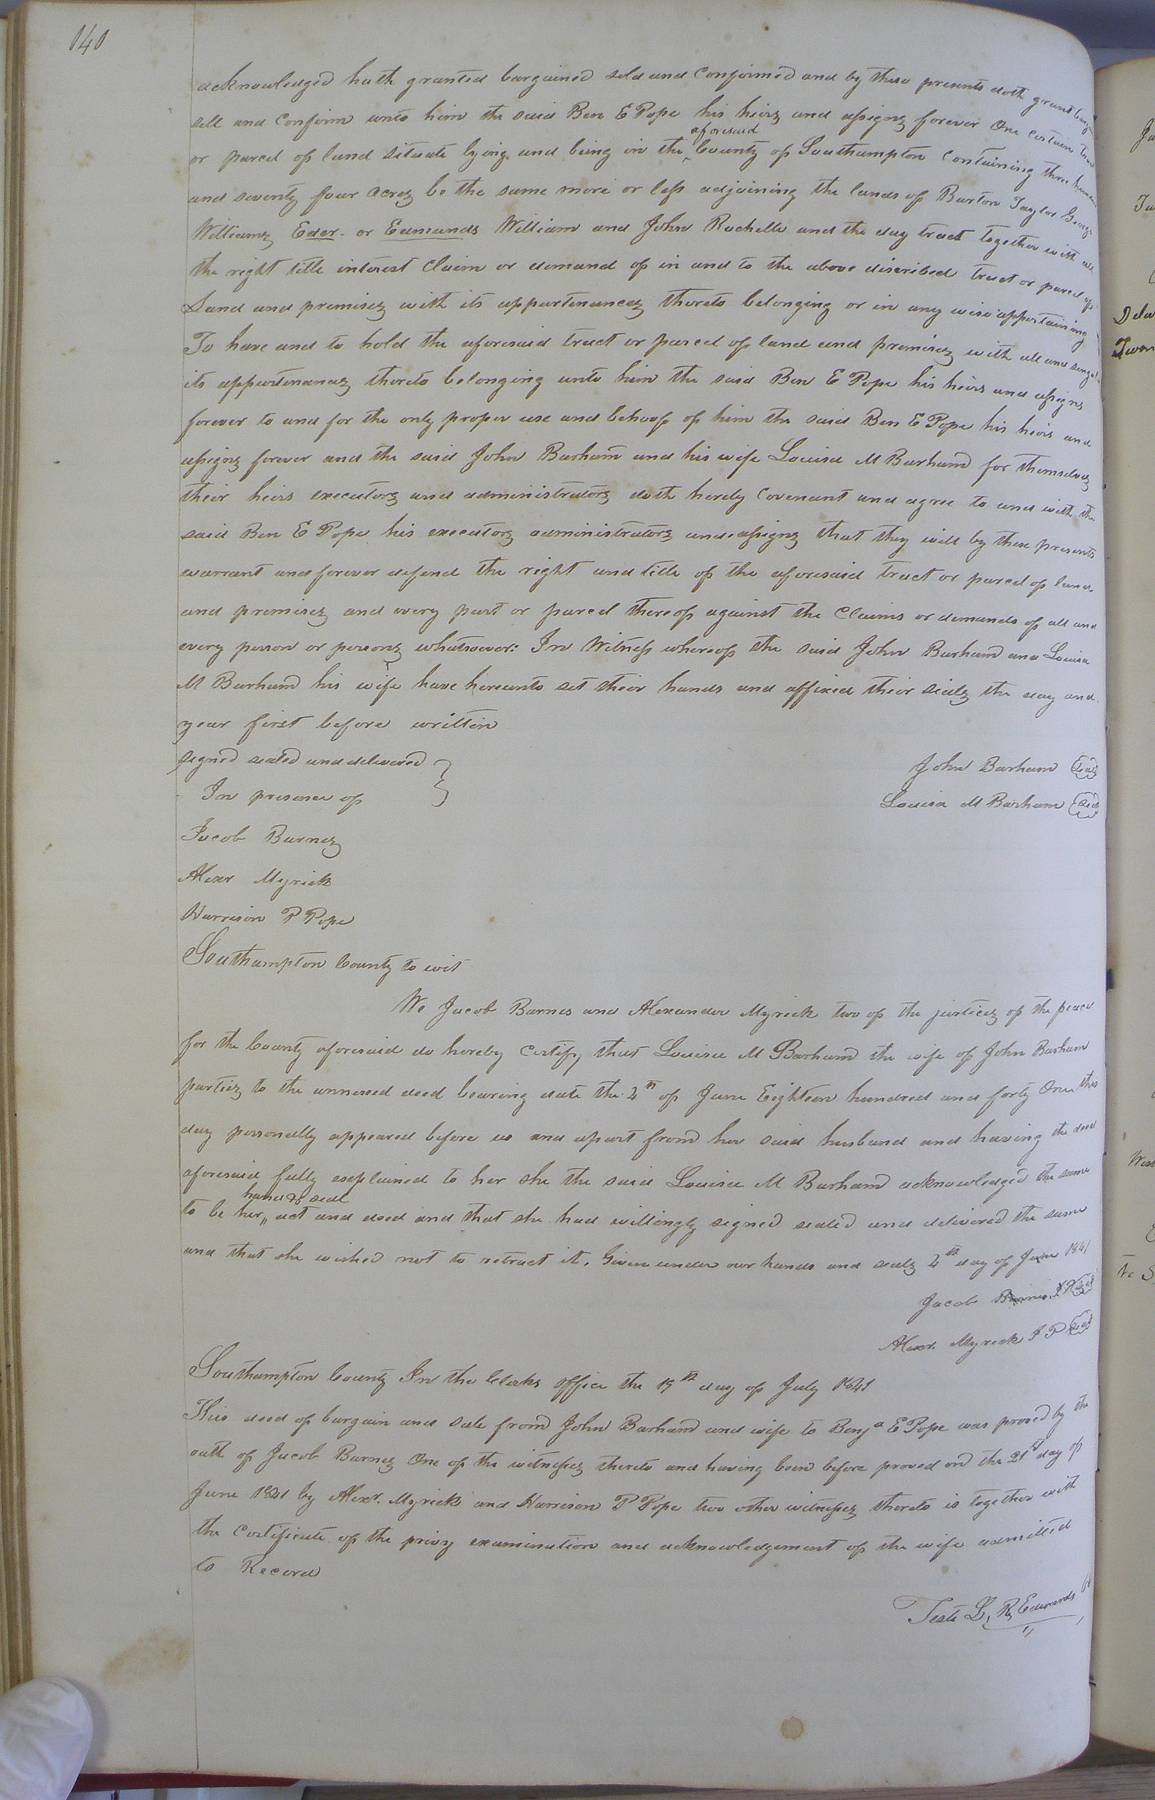 141
acknowledged hath granted bargained sold and confirmed and by these presents doth grant barg
sell and confirm unto him the said Ben E Pope his heirs and assigns forever One certain tract
or parcel of land situate lying and being in the aforesaid County of Southampton Containing three hundred
and seventy four acres be the same more or less adjoining the lands of Burton Taylor George
Williams Eder. or Edmunds William and John Rochelle and the day tract together with all
the right title interest claim or demand of in and to the above discribed tract or parcel of
Land and premises with its appurtenances thereto belonging or in any wise appertaining
To have and to hold the aforesaid tract or parcel of land and premises with all and singular
its appurtenances thereto belonging unto him the said Ben E Pope his heirs and assigns
forever to and for the only proper use and behoof of him the said Ben E Pope his heirs and
assigns forever and the said John Barham and his wife Louisa M Barham for themselves
their heirs executors and administrators doth hereby covenant and agree to and with the
said Ben E Pope his executors administrators and assigns that they will by these presents
warrant and forever defend the right and title of the aforesaid tract or parcel of land
and premises and every part or parcel thereof against the Claims or demands of all and
every person or persons whatsoever: In Witness whereof the said John Barham and Louisa
M Barham his wife have hereunto set their hands and affixed their seals the day and
year first before written
signed sealed and delivered
In presence of
John Barham Seal
Louisa M Barham Seal
Jacob Barnes
Alexr Myrick
Harrison P Pope
Southampton County to wit
We Jacob Barnes and Alexander Myrick two of the justices of the peace
for the County aforesaid do hereby certify that Louisa M Barham the wife of John Barham
parties to the annexed deed bearing date the 2th of June Eighteen hundred and forty One this
day personally appeared before us and apart from her said husband and having the deed
aforesaid fully explained to her she the said Louisa M Barham acknowledged the same
to be her hand & seal act and deed and that she had willingly signed sealed and delivered the same
and that she wished not to retract it. Given under our hands and seals 2th day of June 1841
Jacob Barnes J P Seal
Alexr. Myrick J P Seal
Southampton County In the Clerks office the 19th day of July 1841
This deed of bargain and sale from John Barham and wife to Benja E Pope was proved by the
oath of Jacob Barnes One of the witnesses thereto and having been before proved on the 21st day of
June 1841 by Alexr. Myrick and Harrison P Pope two other witnesses thereto is together with
the certificate of the privy examination and acknowledgement of the wife admitted
to Record
Teste L. R. Edwards